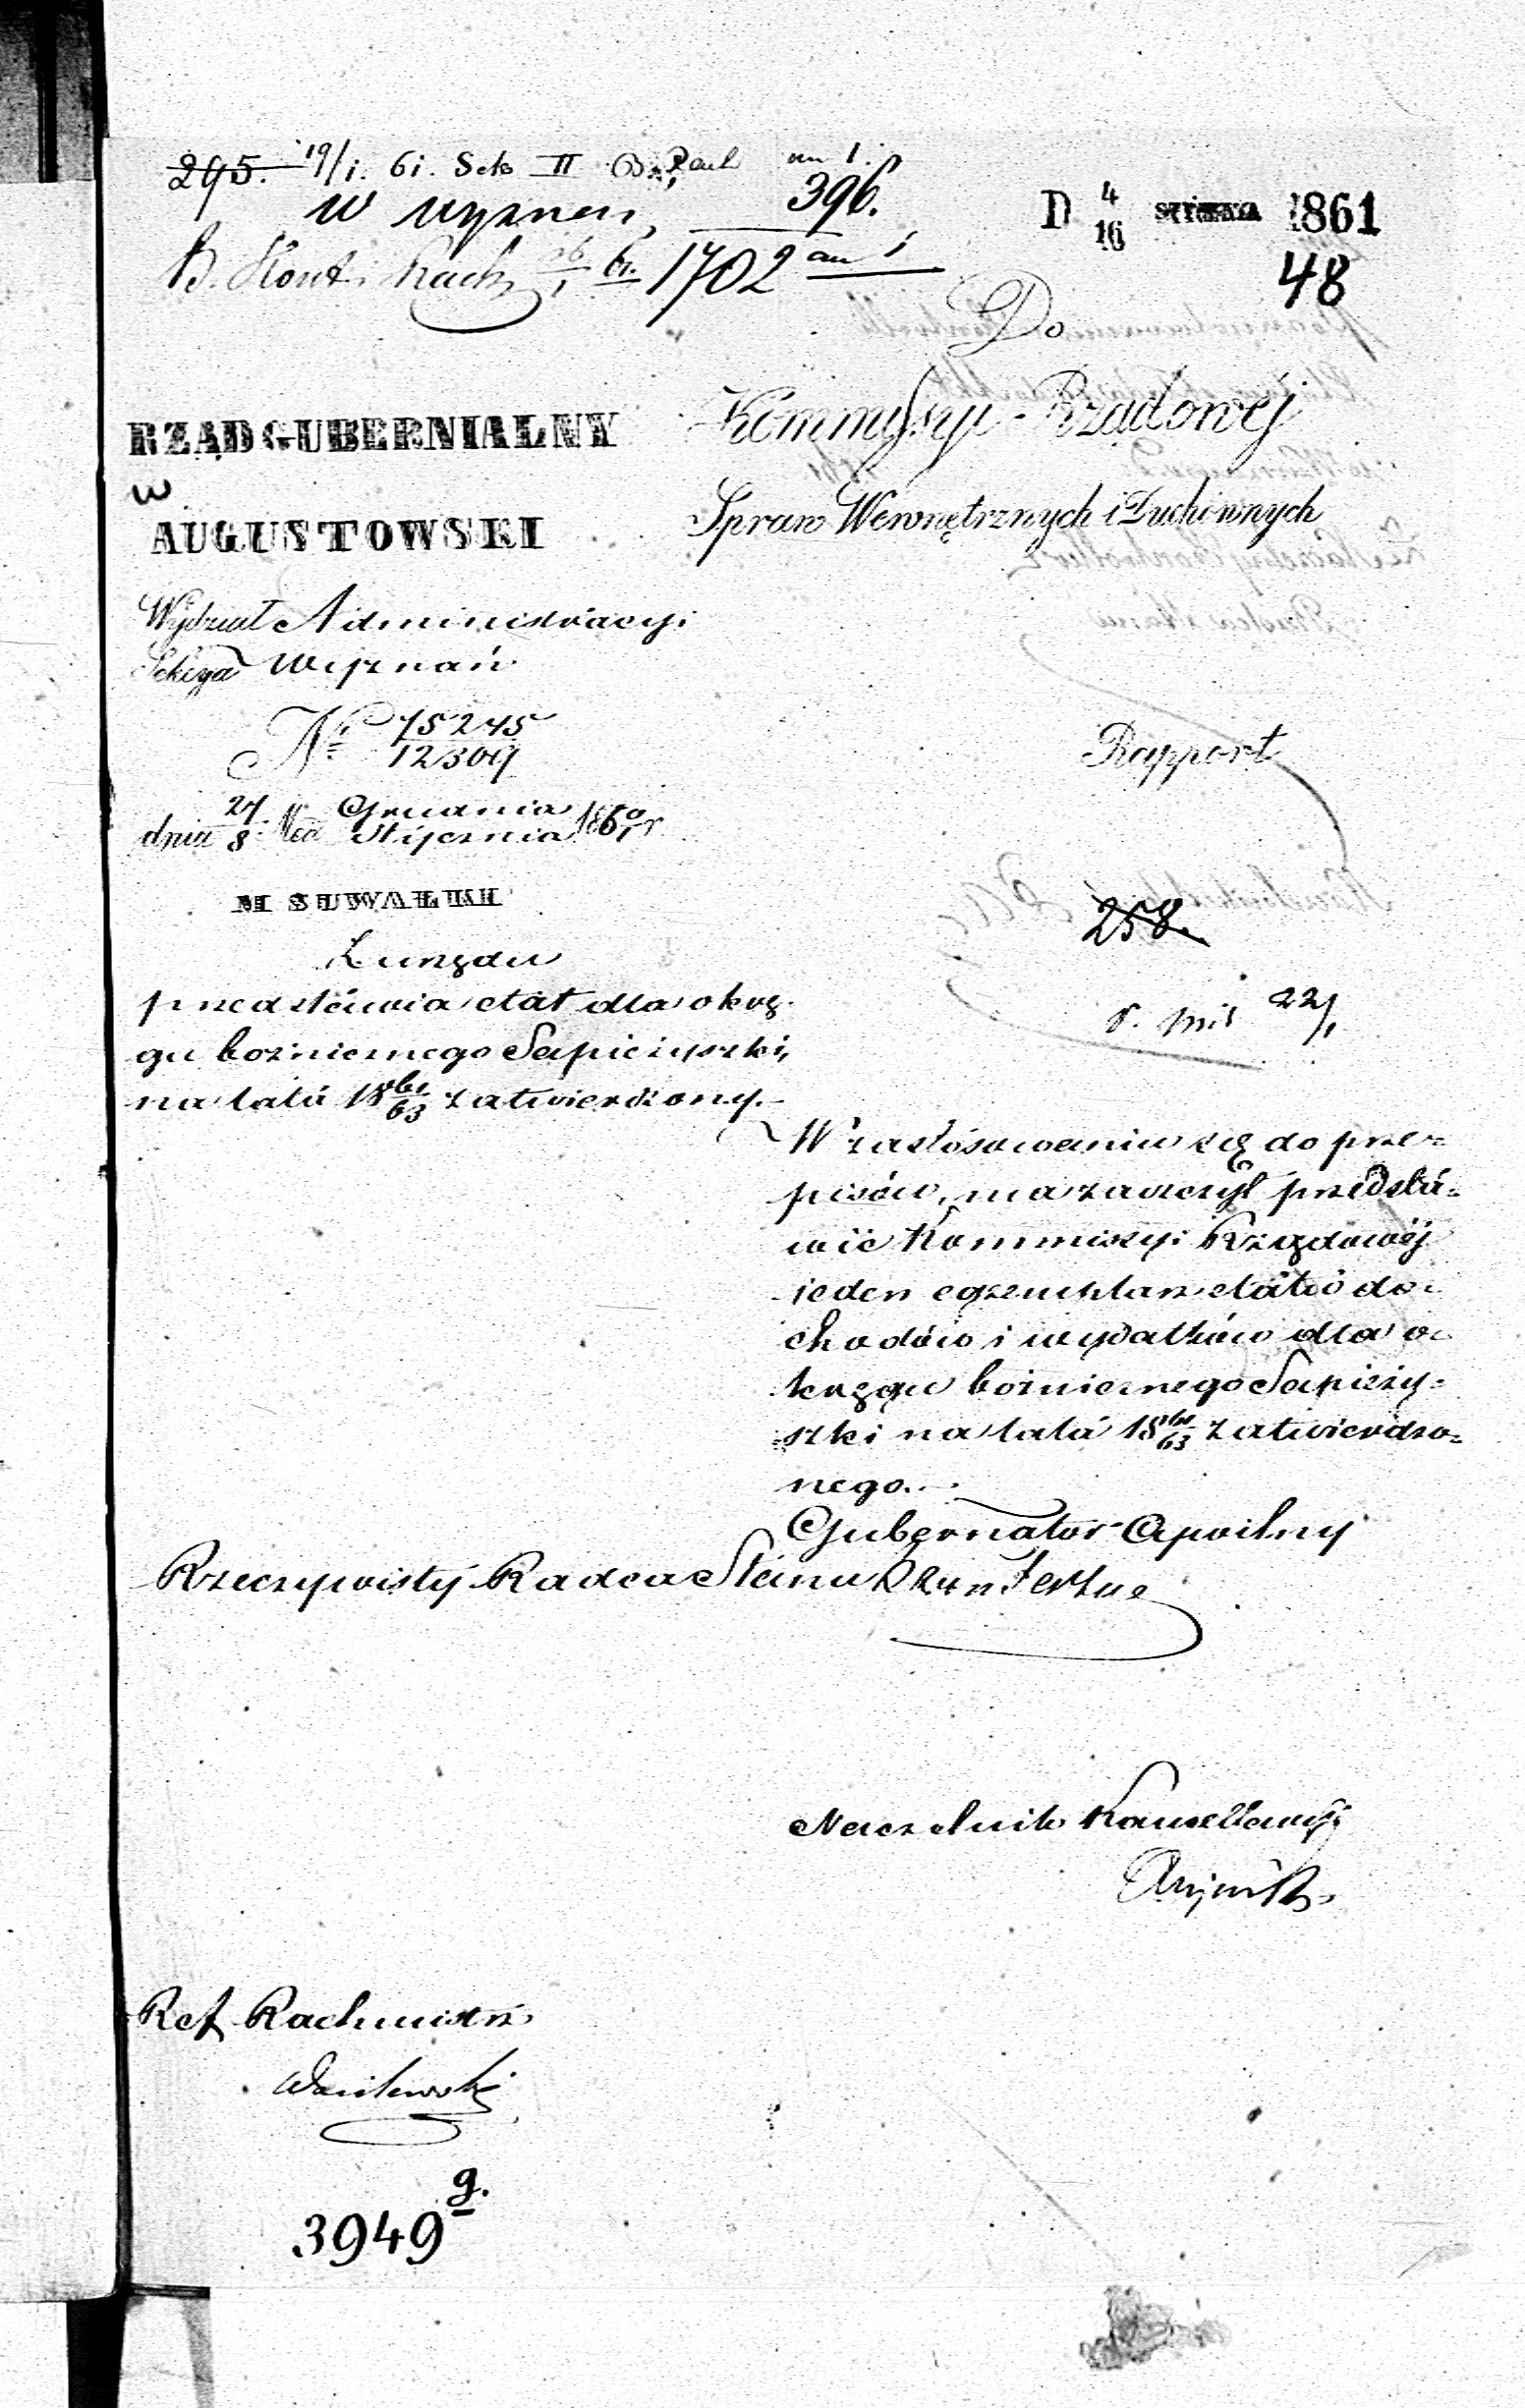 295. 19/1. 61. Sek II
w wyznań 396.
D 4/16 Stycznia 1861
B. Kont. i Rach. 26/1 61. 1702 an 1
48
Do
Kommyssyi Rządowéj
Spraw Wewnętrznych i Duchownych
RZĄD GUBERNIALNY
w
AUGUSTOWSKI
Wydział Administracyi
Sekcya Wyznań
№ 75245/12309
dnia 27/8 Mca Grudnia/Stycznia 1860/1 r
M SUWAŁKI
Rapport
258.
22/1
Z urzędu
przedstawia etat dla okrę-
gu bożnicznego Sapieżyszki,
na lata 1861/63 zatwierdzony.-
W zastósowaniu się do prze-
pisów, ma zaszczyt przedsta-
wić Kommissyi Rządowéj
jeden egzemplarz etatu do-
chodów i wydatków dla o-
kręgu bożnicznego Sapieży-
szki na lata 1861/63 zatwierdzo-
nego.-
Gubernator Cywilny
Rzeczywisty Radca Stanu
Naczelnik Kancellaryi
Ref Rachmistrz
Wasilewski
3949 g.